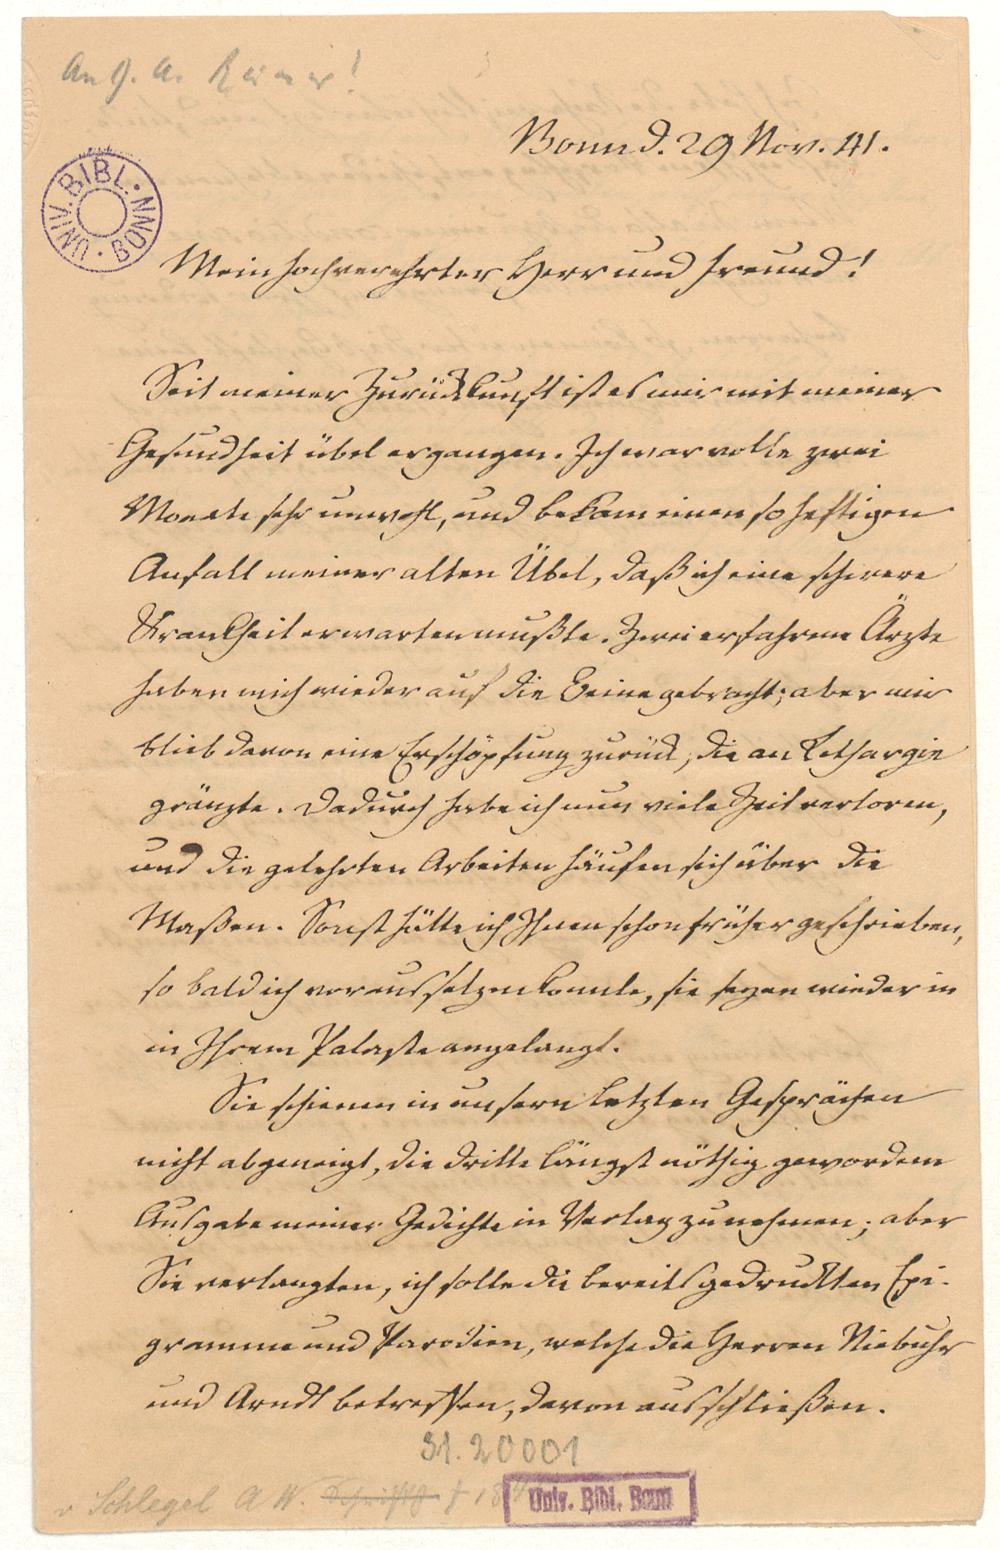 An G. A. Reimer!
Bonn d. 29 Nov. 41.
UNIV. BIBL. BONN
Mein hochverehrter Herr und Freund!
Seit meiner Zurückkunft ist es mir mit meiner
Gesundheit übel ergangen. Ich war volle zwei
Monate sehr unwohl, und bekam einen so heftigen
Anfall meiner alten Übel, daß ich eine schwere
Krankheit erwarten mußte. Zwei erfahrene Ärzte
haben mich wieder auf die Beine gebracht; aber mir
blieb davon eine Erschöpfung zurück, die an Lethargie
gränzte. Dadurch habe ich nun viele Zeit verloren,
und die gelehrten Arbeiten häufen sich über die
Maßen. Sonst hätte ich Ihnen schon früher geschrieben,
so bald ich voraussetzen konnte, sie seyen wieder in
in Ihrem Palaste angelangt.
Sie schienen in unsern letzten Gesprächen
nicht abgeneigt, die dritte längst nöthig gewordene
Ausgabe meiner Gedichte in Verlag zu nehmen; aber
Sie verlangten, ich solle die bereits gedruckten Epi-
gramme und Parodien, welche die Herren Niebuhr
und Arndt betreffen, davon ausschließen.
31.20001
v Schlegel A W.
Univ. Bibl. Bonn